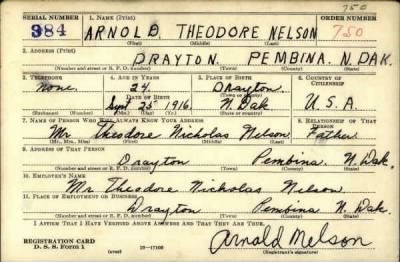 750
SERIAL NUMBER 1. NAME (Print) ORDER NUMBER
384 ARNOLD THEODORE NELSON 750
(First) (Middle) (Last)
2. ADDRESS (Print)
DRAYTON. PEMBINA. N. DAK.
(Number and street or R. F. D. number) (Town) (County) (State)
3. TELEPHONE 4. AGE IN YEARS 5. PLACE OF BIRTH 6. COUNTRY OF CITIZENSHIP
None. 24. Drayton.
DATE OF BIRTH (Town or county)
Sept 25 1916 N. Dak U. S. A.
(Mo.) (Day) (Yr.) (State or country)
7. NAME OF PERSON WHO WILL ALWAYS KNOW YOUR ADDRESS 8. RELATIONSHIP OF THAT PERSON
Mr Theodore Nicholas Nelson. Father
(Mr., Mrs., Miss) (First) (Middle) (Last)
9. ADDRESS OF THAT PERSON
Drayton Pembina N. Dak.
(Number and street or R. F. D. number) (Town) (County) (State)
10. EMPLOYER'S NAME
Mr Theodore Nicholas Nelson.
11. PLACE OF EMPLOYMENT OR BUSINESS
Drayton Pembina N. Dak.
(Number and street or R. F. D. number) (Town) (County) (State)
I AFFIRM THAT I HAVE VERIFIED ABOVE ANSWERS AND THAT THEY ARE TRUE.
REGISTRATION CARD
D. S. S. Form 1 (over) 16—17105 Arnold Nelson
(Registrant's signature)